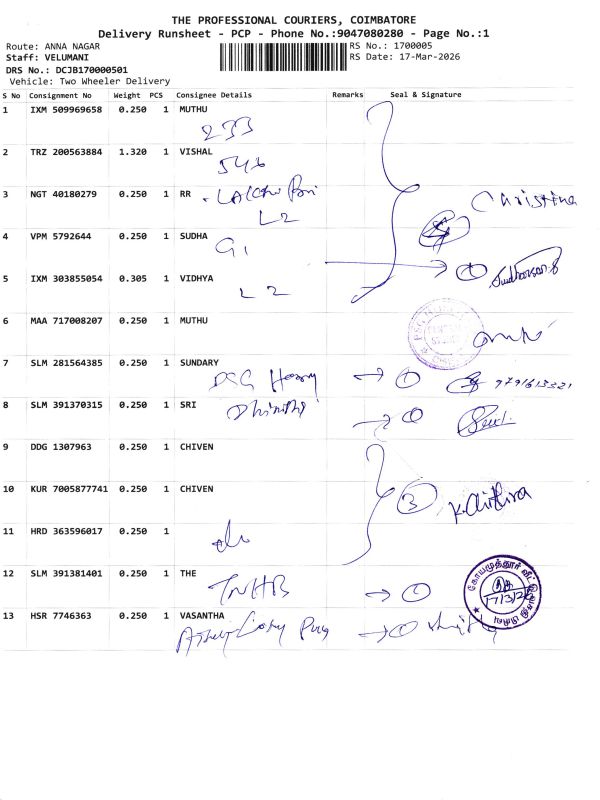 THE PROFESSIONAL COURIERS, COIMBATORE
Delivery Runsheet - PCP - Phone No.:9047080280 - Page No.:1
Route: ANNA NAGAR RS No.: 1700005
Staff: VELUMANI RS Date: 17-Mar-2026
DRS No.: DCJB170000501
Vehicle: Two Wheeler Delivery
S No Consignment No Weight PCS Consignee Details Remarks Seal & Signature
1 IXM 509969658 0.250 1 MUTHU
233
2 TRZ 200563884 1.320 1 VISHAL
546
3 NGT 40180279 0.250 1 RR
L2 Christina
4 VPM 5792644 0.250 1 SUDHA
G1
5 IXM 303855054 0.305 1 VIDHYA
L2 1
6 MAA 717008207 0.250 1 MUTHU
7 SLM 281564385 0.250 1 SUNDARY
1 9791613321
8 SLM 391370315 0.250 1 SRI
9 DDG 1307963 0.250 1 CHIVEN
10 KUR 7005877741 0.250 1 CHIVEN
3
11 HRD 363596017 0.250 1
12 SLM 391381401 0.250 1 THE
TNHB 1
கோயமுத்தூர் வீட்டு
17/3/26
13 HSR 7746363 0.250 1 VASANTHA
1